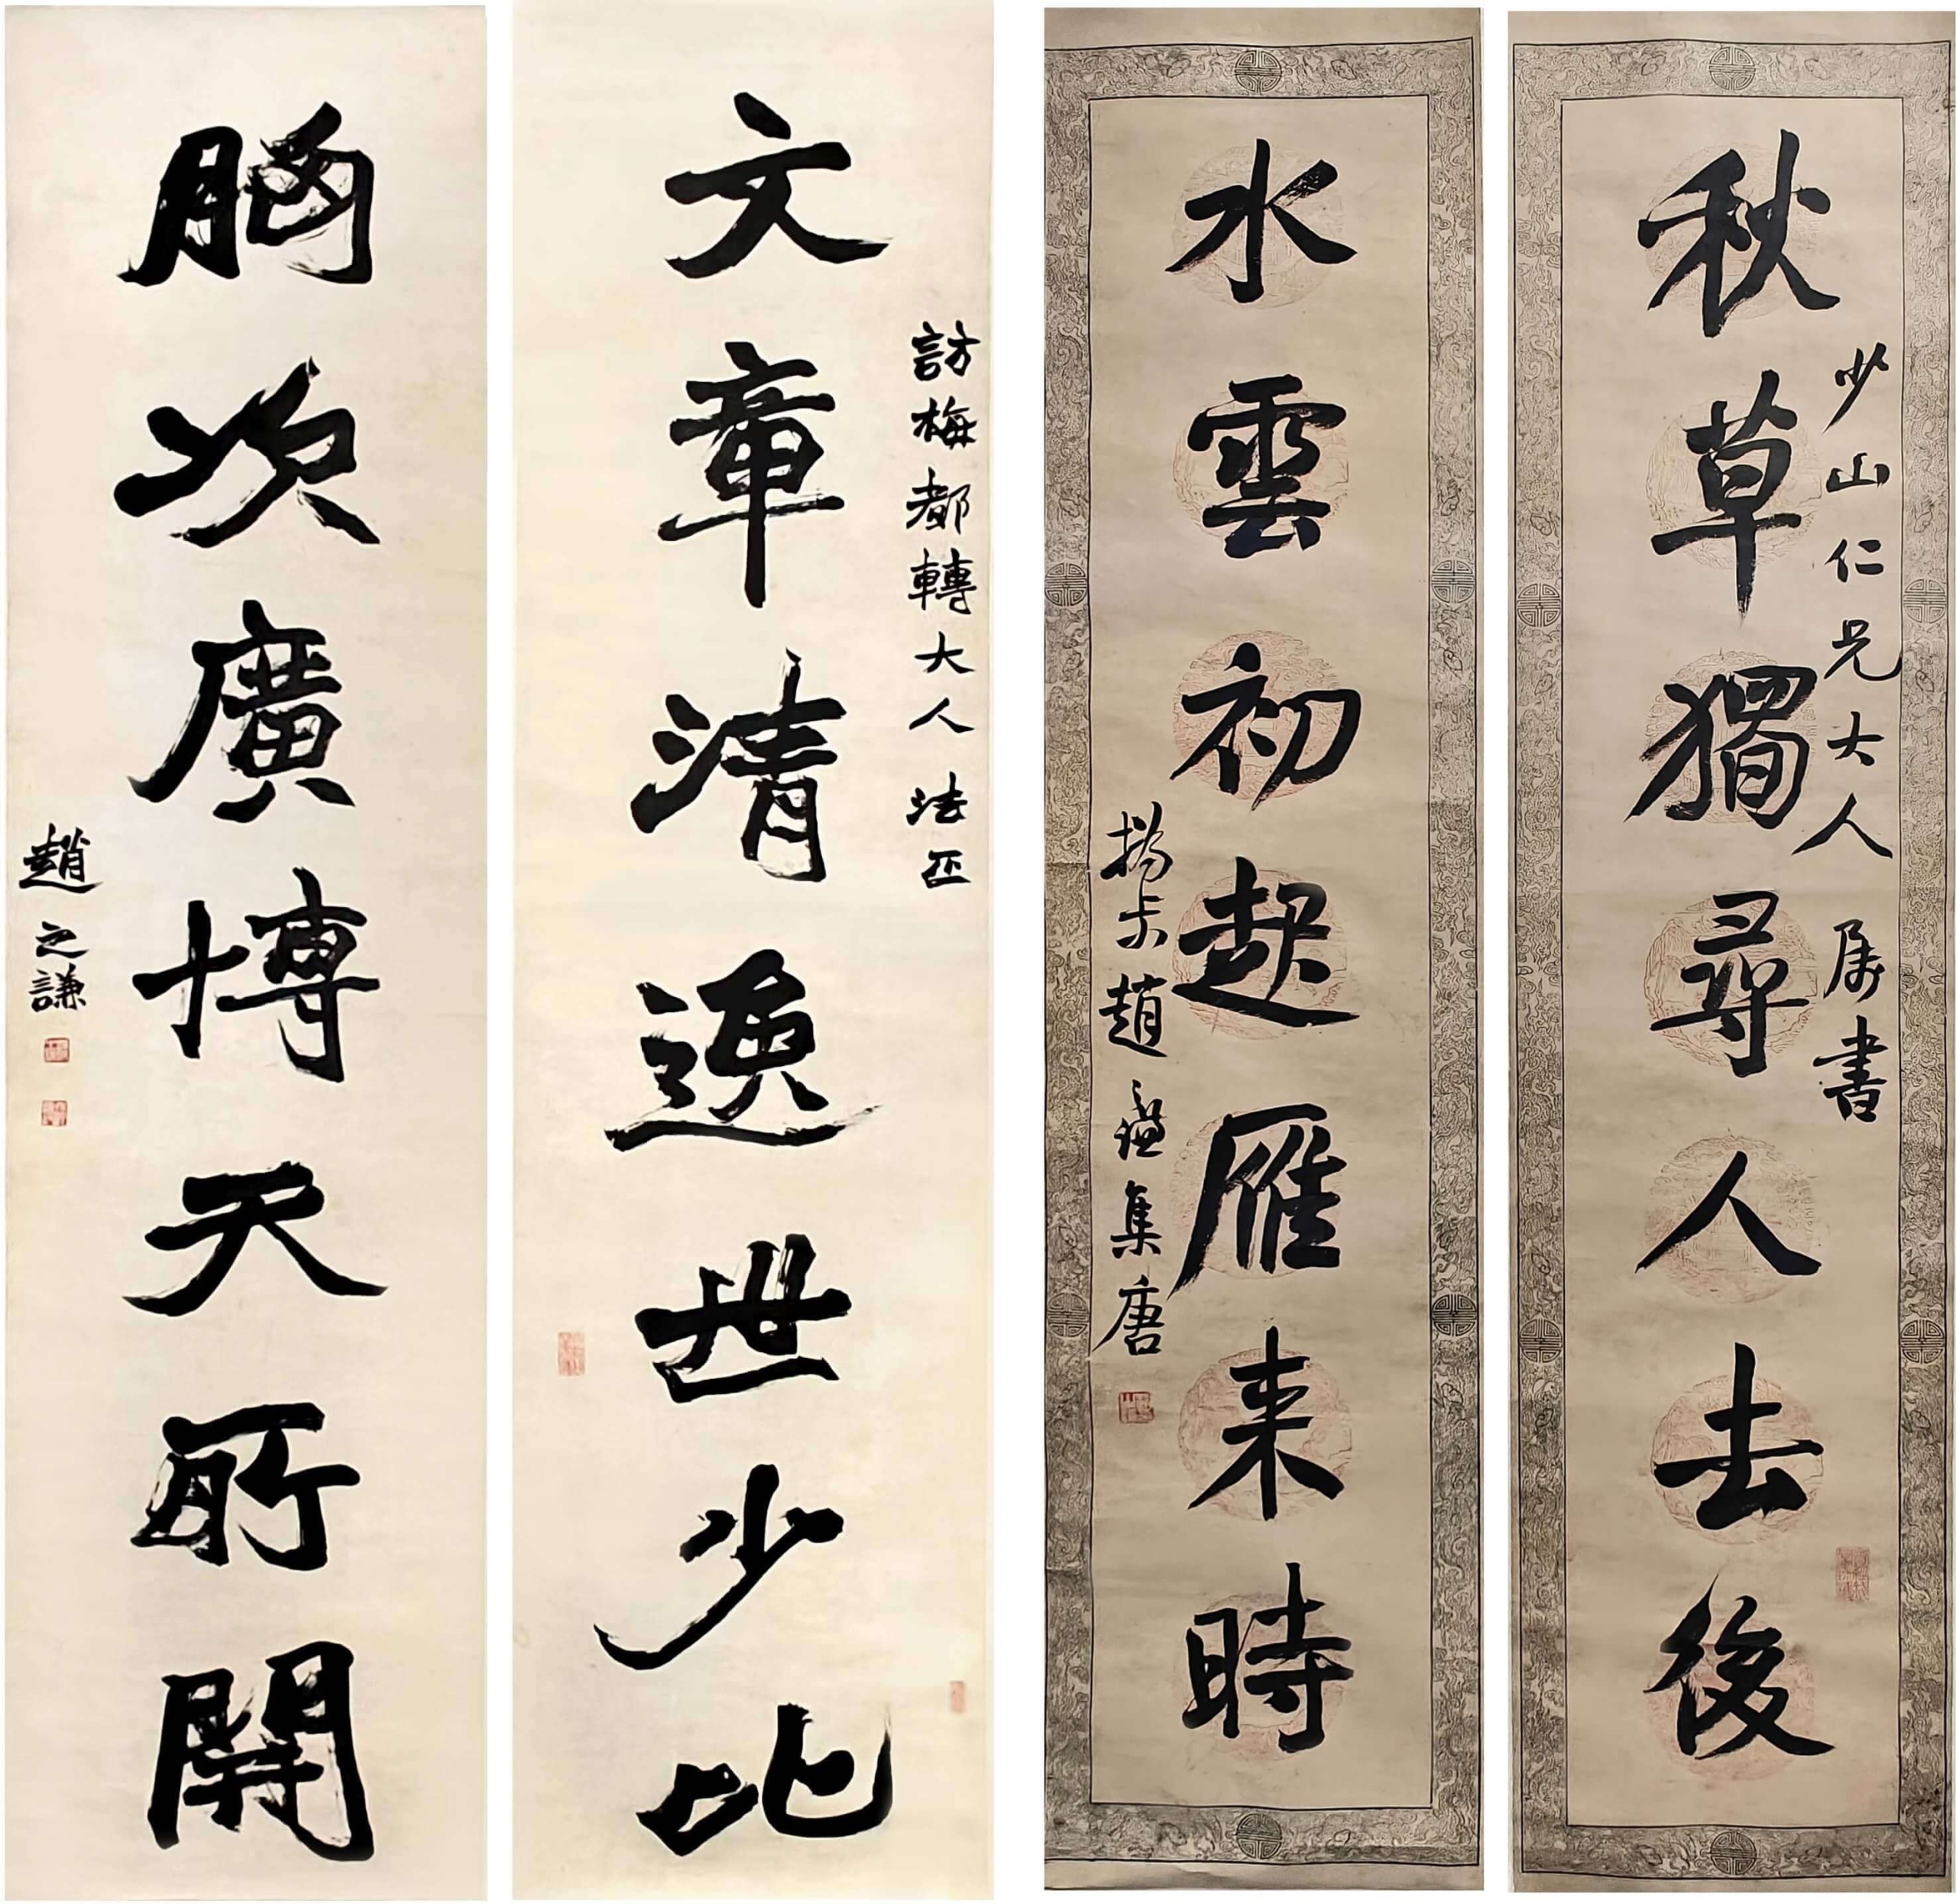 少山仁兄大人属書
秋草獨尋人去後
水雲初起雁来時
撝尗趙之謙集唐
訪梅都轉大人法正
文章清逸世少比
胸次廣博天所開
趙之謙